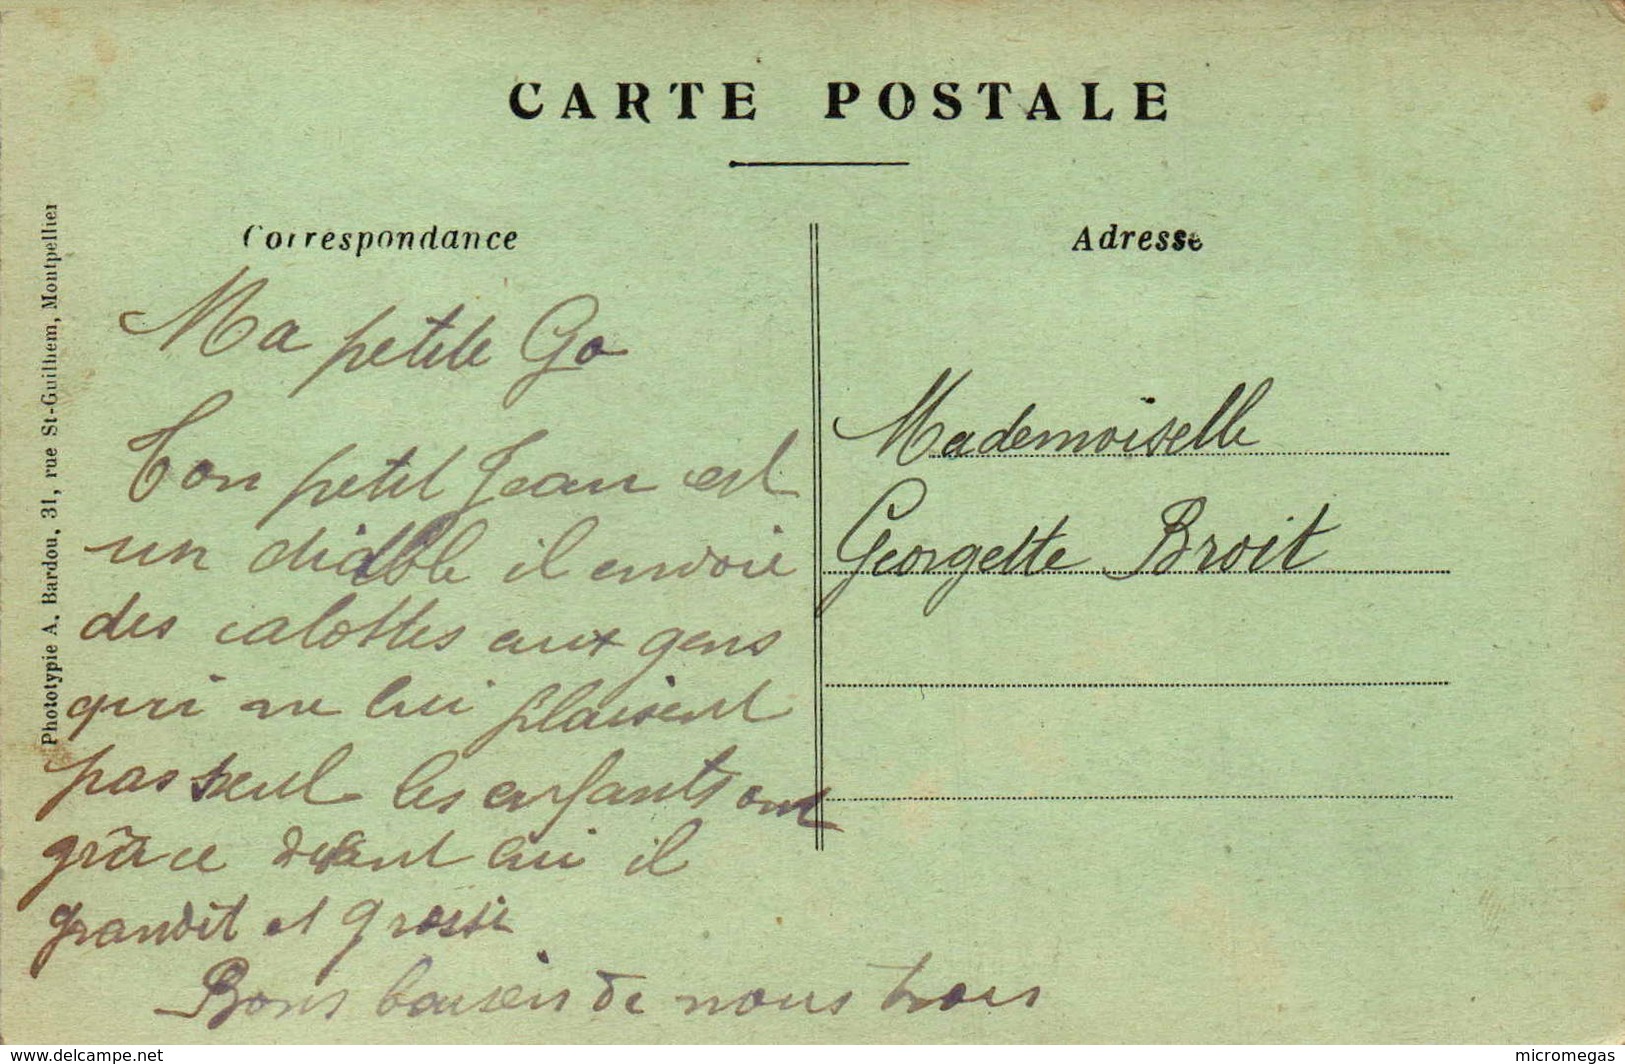 CARTE POSTALE
Correspondance
Adresse
Phototypie A. Bardou, 31, rue St-Guilhem, Montpellier
Ma petite Go
Ton petit Jean est
un diable il envoie
des calottes aux gens
qui ne lui plaisent
pas seul les enfants ont
grâce devant lui il
grandit et grossi
Bons baisers de nous trois
Mademoiselle
Georgette Broit
www.delcampe.net
micromegas